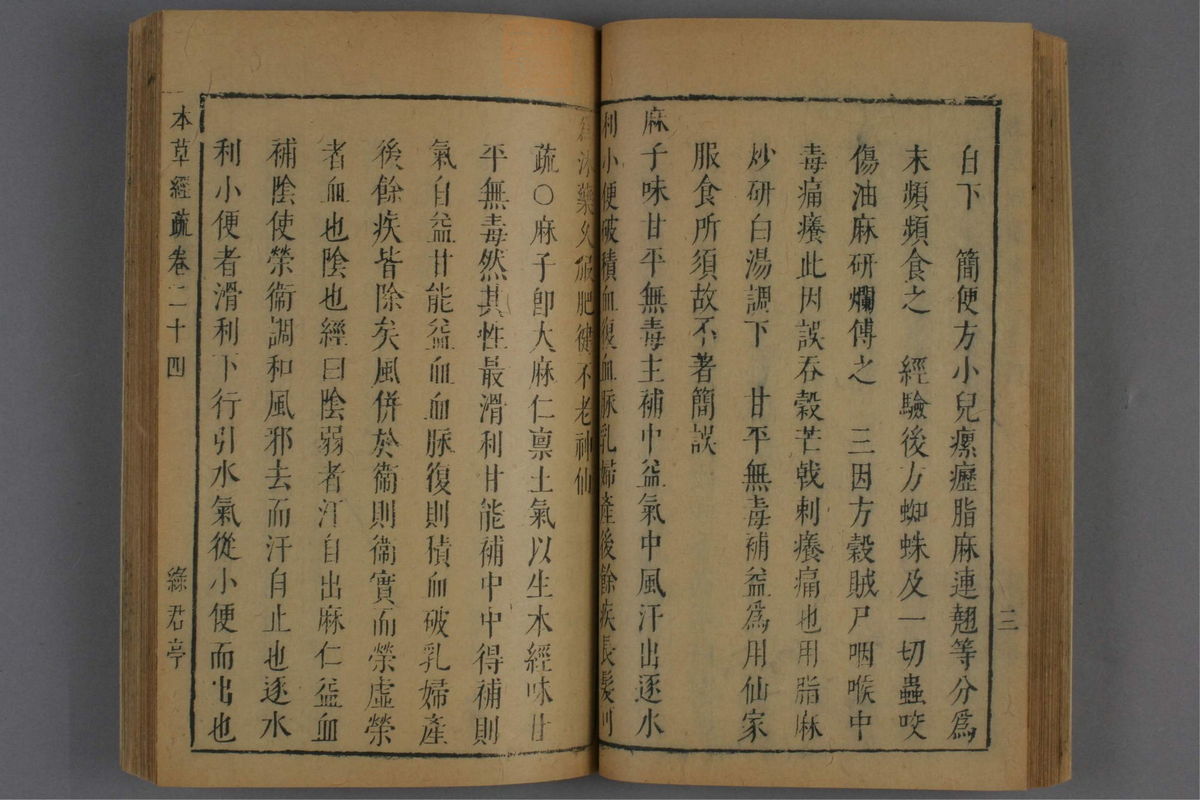 三
自下　簡便方小兒瘰癧脂麻連翹等分爲
末頻頻食之　經驗後方蜘蛛及一切蟲咬
傷油麻研爛傅之　三因方穀賊尸咽喉中
毒痛癢此因誤吞穀芒戟刺癢痛也用脂麻
炒研白湯調下　甘平無毒補益爲用仙家
服食所須故不著簡誤
麻子味甘平無毒主補中益氣中風汗出逐水
利小便破積血復血脉乳婦產後餘疾長髮可
爲沐藥久服肥健不老神仙
疏〇麻子卽大麻仁禀土氣以生本經味甘
平無毒然其性最滑利甘能補中中得補則
氣自益甘能益血血脉復則積血破乳婦產
後餘疾皆除矣風併於衞則衞實而榮虛榮
者血也陰也經曰陰弱者汗自出麻仁益血
補陰使榮衞調和風邪去而汗自止也逐水
利小便者滑利下行引水氣從小便而出也
本草經疏卷二十四
綠君亭